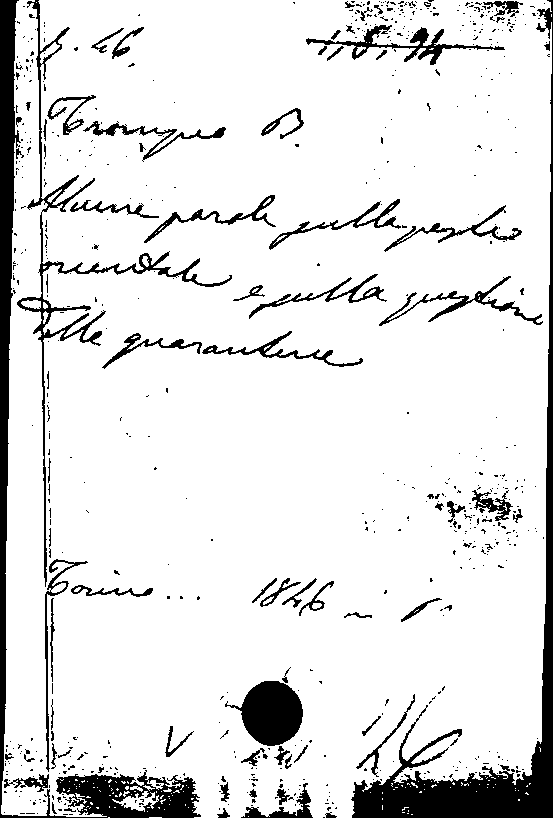 B. 46. 1. 8. 94
Trompeo B.
Alcune parole sulla peste
orientale e sulla questione
delle quarantene
Torino... 1846 in 8°
V 46